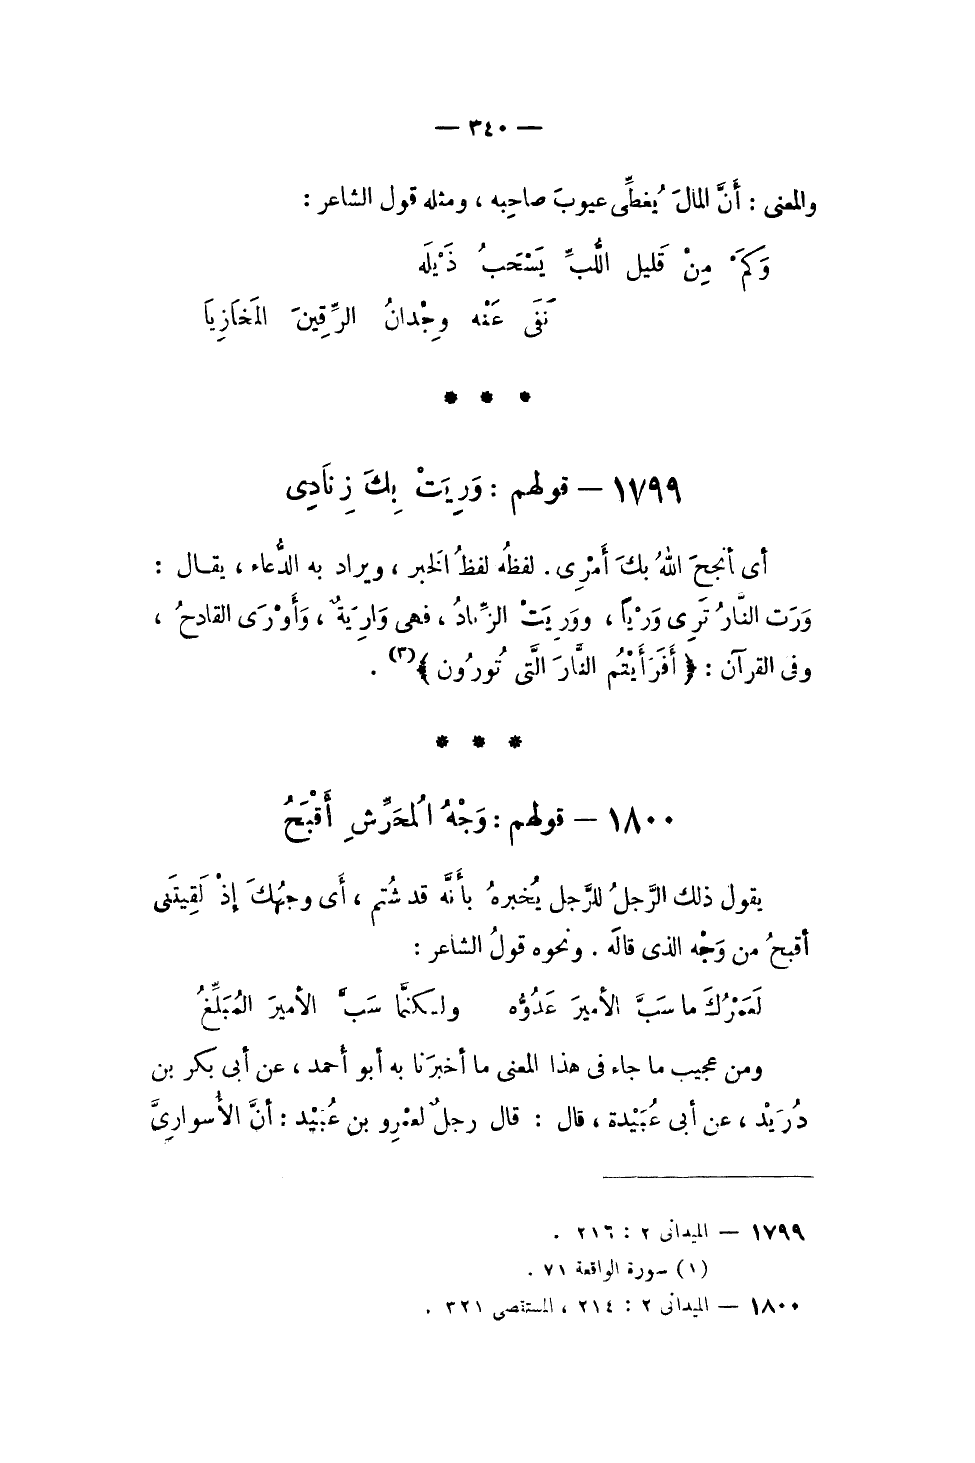 — ٣٤٠ —
والمعنى : أَنَّ المالَ يُغطِّى عيوبَ صاحِبه ، ومثله قول الشاعر :
وَكَمْ مِنْ قَليل اللُّبِّ يَسْحَبُ ذَيْلَه
نَفَى عَنْه وِجْدانُ الرِّقِينَ المَخَازِيَا
* * *
١٧٩٩ — قولهم : وَرِيَتْ بِكَ زِنَادِى
أى أنجحَ اللهُ بكَ أَمْرِى . لفظُه لفظُ الخبر ، ويراد به الدُّعاء ، يقـال :
وَرَت النَّارُ تَرِى وَرْياً ، ووَرِيَتْ الزِّنادُ ، فهى وَارِيَةٌ ، وَأَوْرَى القادحُ ،
وفى القرآن : ﴿ أَفَرَأَيْتُم النَّارَ الَّتى تُورُون ﴾(٣) .
* * *
١٨٠٠ — قولهم : وَجْهُ المُحَرِّشِ أَقْبَحُ
يقول ذلك الرَّجلُ للرَّجل يُخبرهُ بأَنَّه قد شُتم ، أَى وجهُكَ إذْ لَقِيتَنى
أقبحُ من وَجْه الذى قالَه . ونحوه قولُ الشاعر :
لَعَمْرُكَ ما سَبَّ الأميرَ عَدُوُّه ولـكنَّما سَبَّ الأميرَ المُبَلِّغُ
ومن عجيب ما جاء فى هذا المعنى ما أخبرَنا به أبو أحمد ، عن أبى بكر بن
دُرَيْد ، عن أبى عُبَيْدة ، قال : قال رجلٌ لعَمْرِو بن عُبَيْد : أنَّ الأُسوارىَّ
١٧٩٩ — الميدانى ٢ : ٢١٦ .
(١) سورة الواقعة ٧١ .
١٨٠٠ — الميدانى ٢ : ٢١٤ ، المستقصى ٣٢١ .